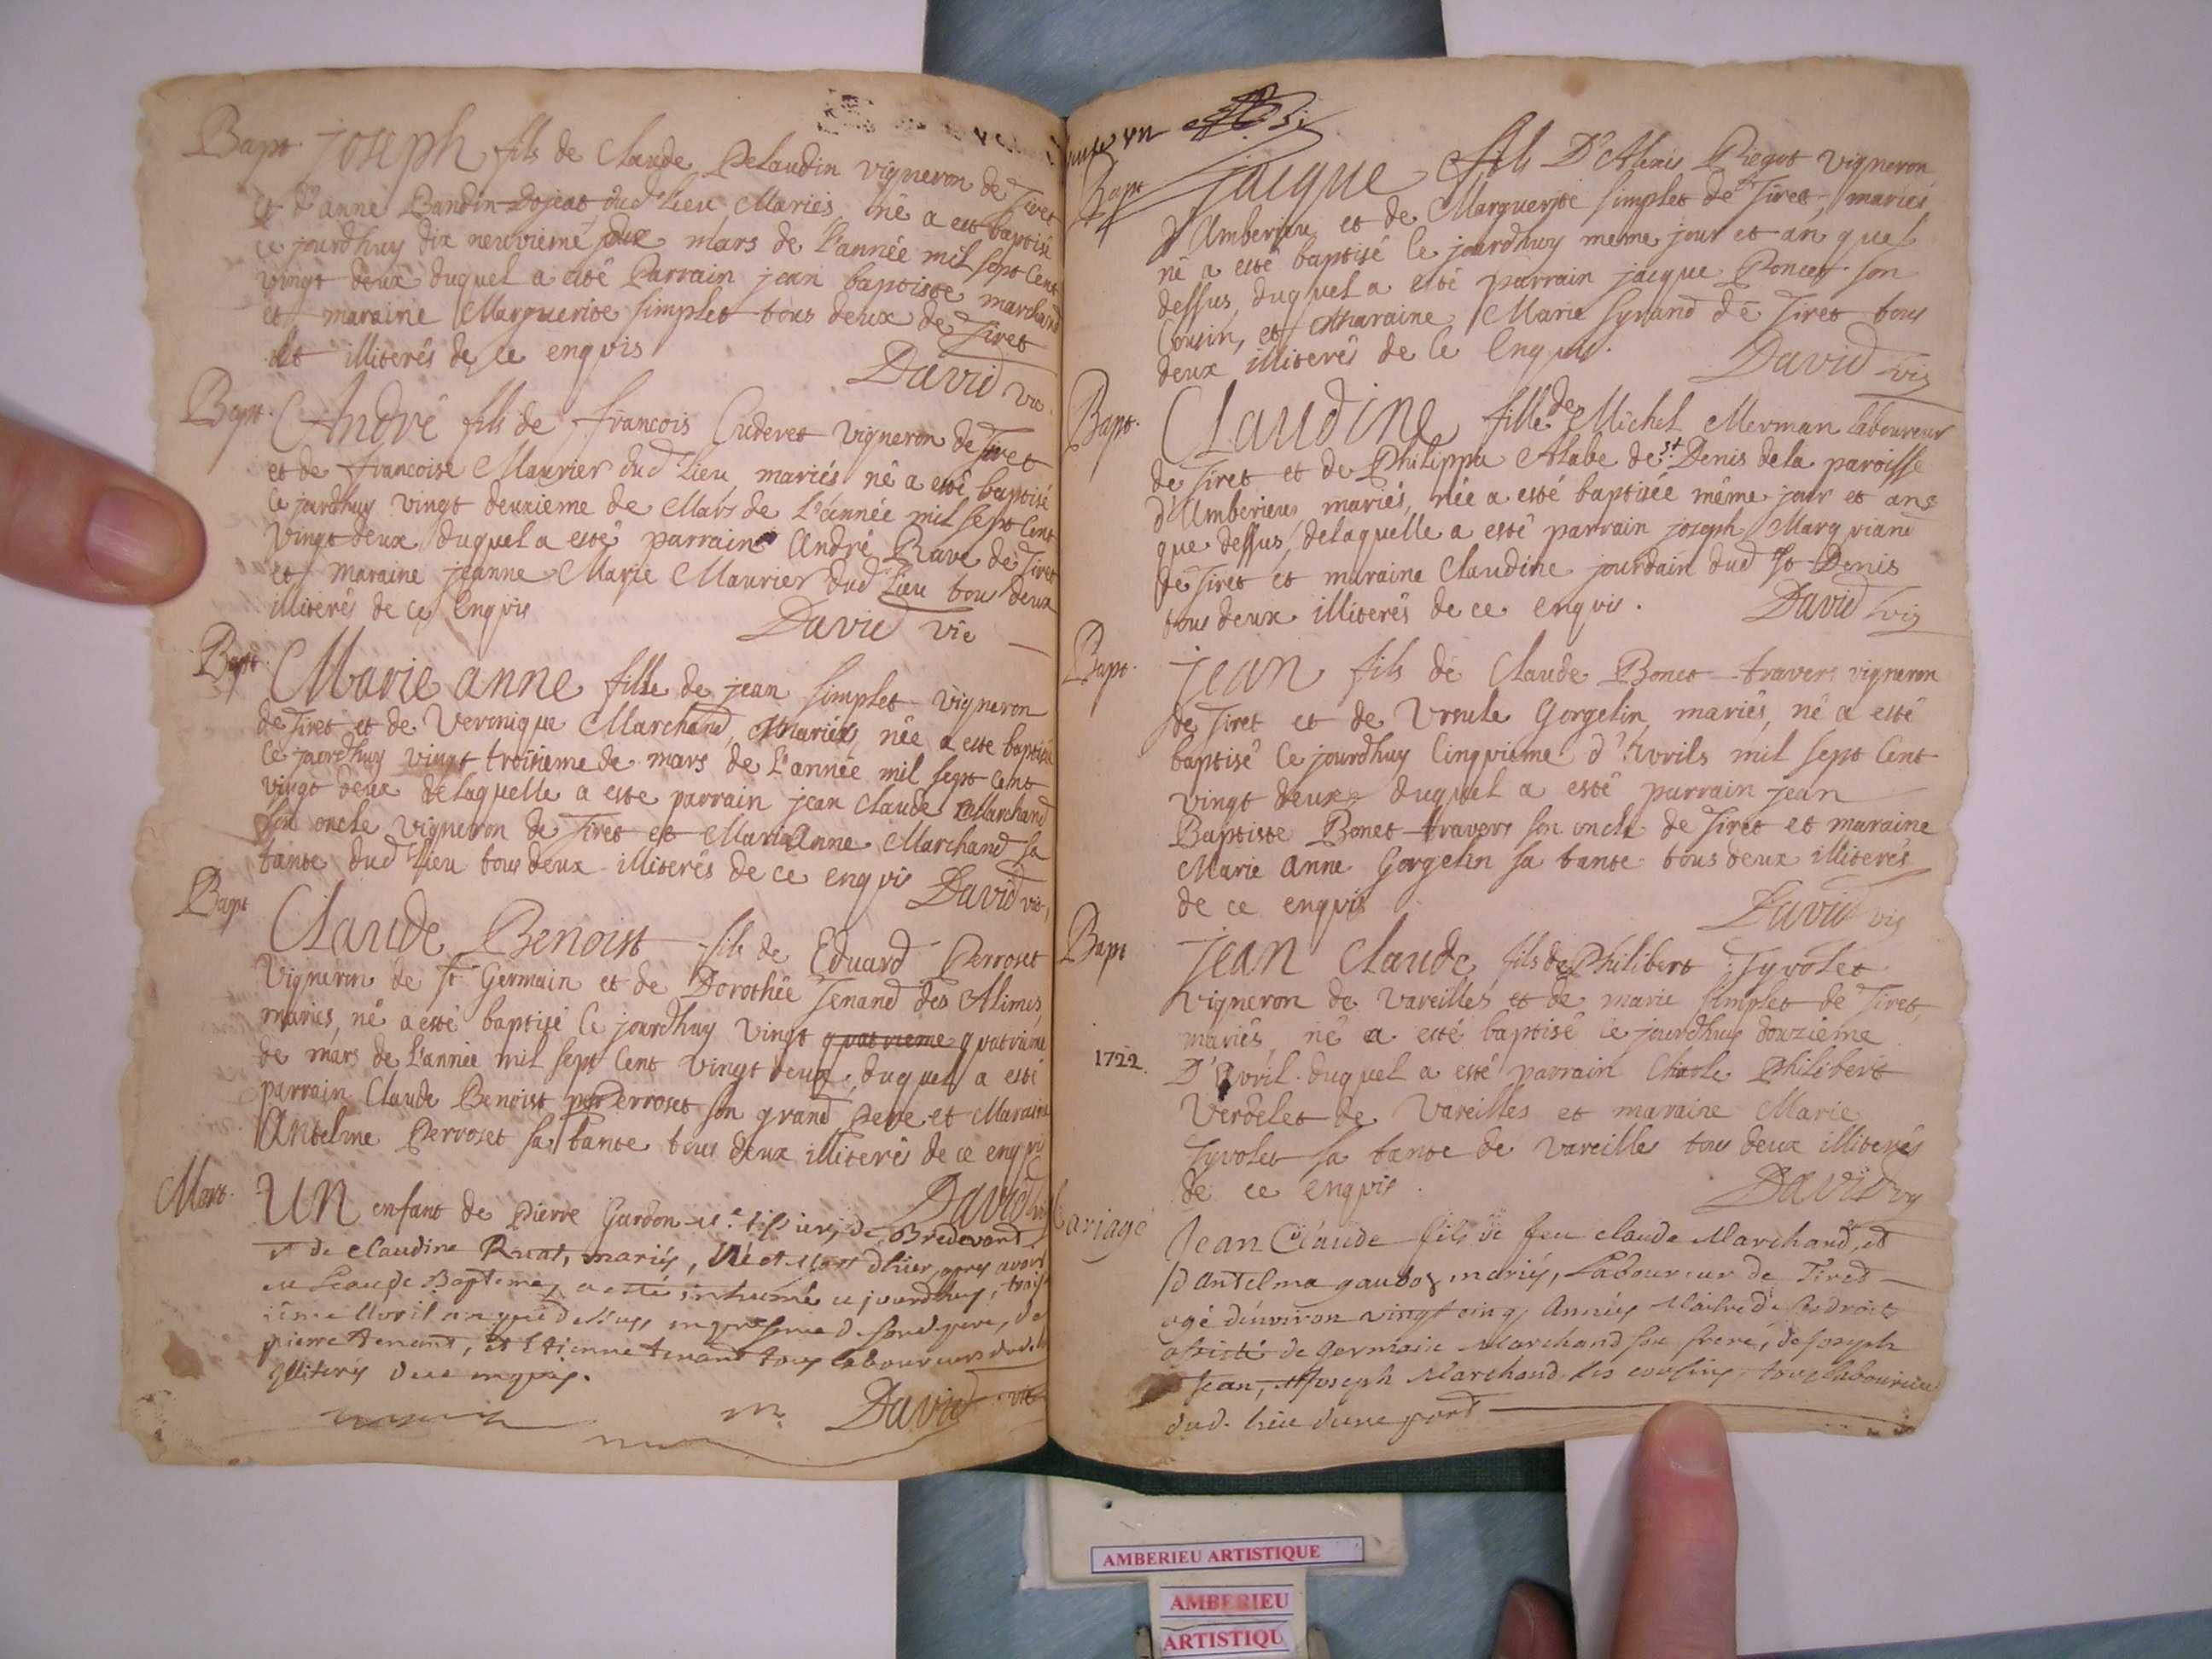 Bapt. joseph fils de Claude Pelaudin vigneron de Tiret
et d'anne Bandin dojeat dud lieu Mariés, né a esté baptisé
ce jourdhuy dix neuvieme mars de l'année mil sept cent
vingt deux duquel a esté Parrain jean baptiste marchand
et maraine Marguerite simplet tous deux de Tiret
illiterés de ce enquis
David vic
Bapt. André fils de francois Cuderet vigneron de Tiret
et de francoise Maurier dud lieu, mariés né a esté baptisé
ce jourdhuy vingt deuxieme de Mars de l'année mil sept cent
vingt deux duquel a esté parrain André Rave de Tiret
et maraine jeanne Marie Maurier dud lieu tous deux
illiterés de ce enquis
David vic
Bapt. Marie anne fille de jean simplet vigneron
de Tiret et de Veronique Marchand, Mariés, née a esté baptisée
ce jourdhuy vingt troisieme de mars de l'année mil sept cent
vingt deux delaquelle a este parrain jean claude Marchand
son oncle vigneron de Tiret et Marie Anne Marchand sa
tante dud lieu tous deux illiterés de ce enquis David vic
Bapt Claude Benoist fils de Eduard Perroset
vigneron de st Germain et de Dorothée Tenand des Alimes,
mariés, né a esté baptisé ce jourdhuy vingt quatrieme quatrieme
de mars de l'année mil sept cent vingt deux, duquel a esté
parrain Claude Benoist Perroset son grand Pere et Maraine
Antelme Perroset sa tante tous deux illiterés de ce enquis
David vic
Mort. UN enfant de Pierre Gardon de Bredevent
et de Claudine Ruat, mariés, Né et Mort d'hier, apres avoir
eu l'eau de Bapteme, a esté inhumé ce jourdhuy, trois
ieme Avril an que dessus en presence de son pere, de
pierre tenant, et Etienne tenant tous laboureurs dud. lieu
illiterés de ce enquis.
David vic
Bapt jacque fils D'Alexis Piegot vigneron
d'Amberieu et de Marguerite simplet de Tiret, mariés
né a esté baptisé ce jourdhuy meme jour et an quel
dessus, duquel a esté parrain jacque Poncet son
Cousin, et Maraine Marie Syrand de Tiret tous
deux illiterés de ce Enquis.
David vic
Bapt. CLaudine fille de Michel Merman laboureur
de Tiret et de Philippa Alabe de St Denis dela paroisse
d'Amberieu mariés, née a esté baptisée même jour et ans
que dessus, delaquelle a esté parrain joseph Marq viand
de Tiret et maraine Claudine jourdain dud St Denis
tous deux illiterés de ce enquis.
David vic
Bapt. jean fils de Claude Bonet-travers vigneron
de Tiret et de Ursule Gorgelin, mariés, né a esté
baptisé ce jourdhuy Cinquieme d'Avrils mil sept Cent
vingt deux, duquel a esté parrain jean
Baptiste Bonet-travers son oncle de Tiret et maraine
Marie Anne Gorgelin sa tante tous deux illiterés
de ce enquis
David vic
Bapt jean Claude fils de Philibert Tyvolet
vigneron de vareilles et de marie simplet de Tiret
mariés, né a esté baptisé ce jourdhuy douzieme
1722.
D'Avril duquel a esté parrain Philibert
Verdelet de Vareilles et maraine Marie
Tyvolet sa tante de vareille tous deux illiterés
de ce enquis.
David vic
ariage
Jean Claude fils de feu claude Marchand, et
d'Antelma gaudoz mariés, Laboureur de Tiret
agé d'environ vingt cinq Années Maitre de ses droits
assisté de Germain Marchand son frere, de Joseph
Jean, Joseph Marchand ses cousins tous laboureurs
dud. lieu d'une part
AMBERIEU ARTISTIQUE
AMBERIEU
ARTISTIQU